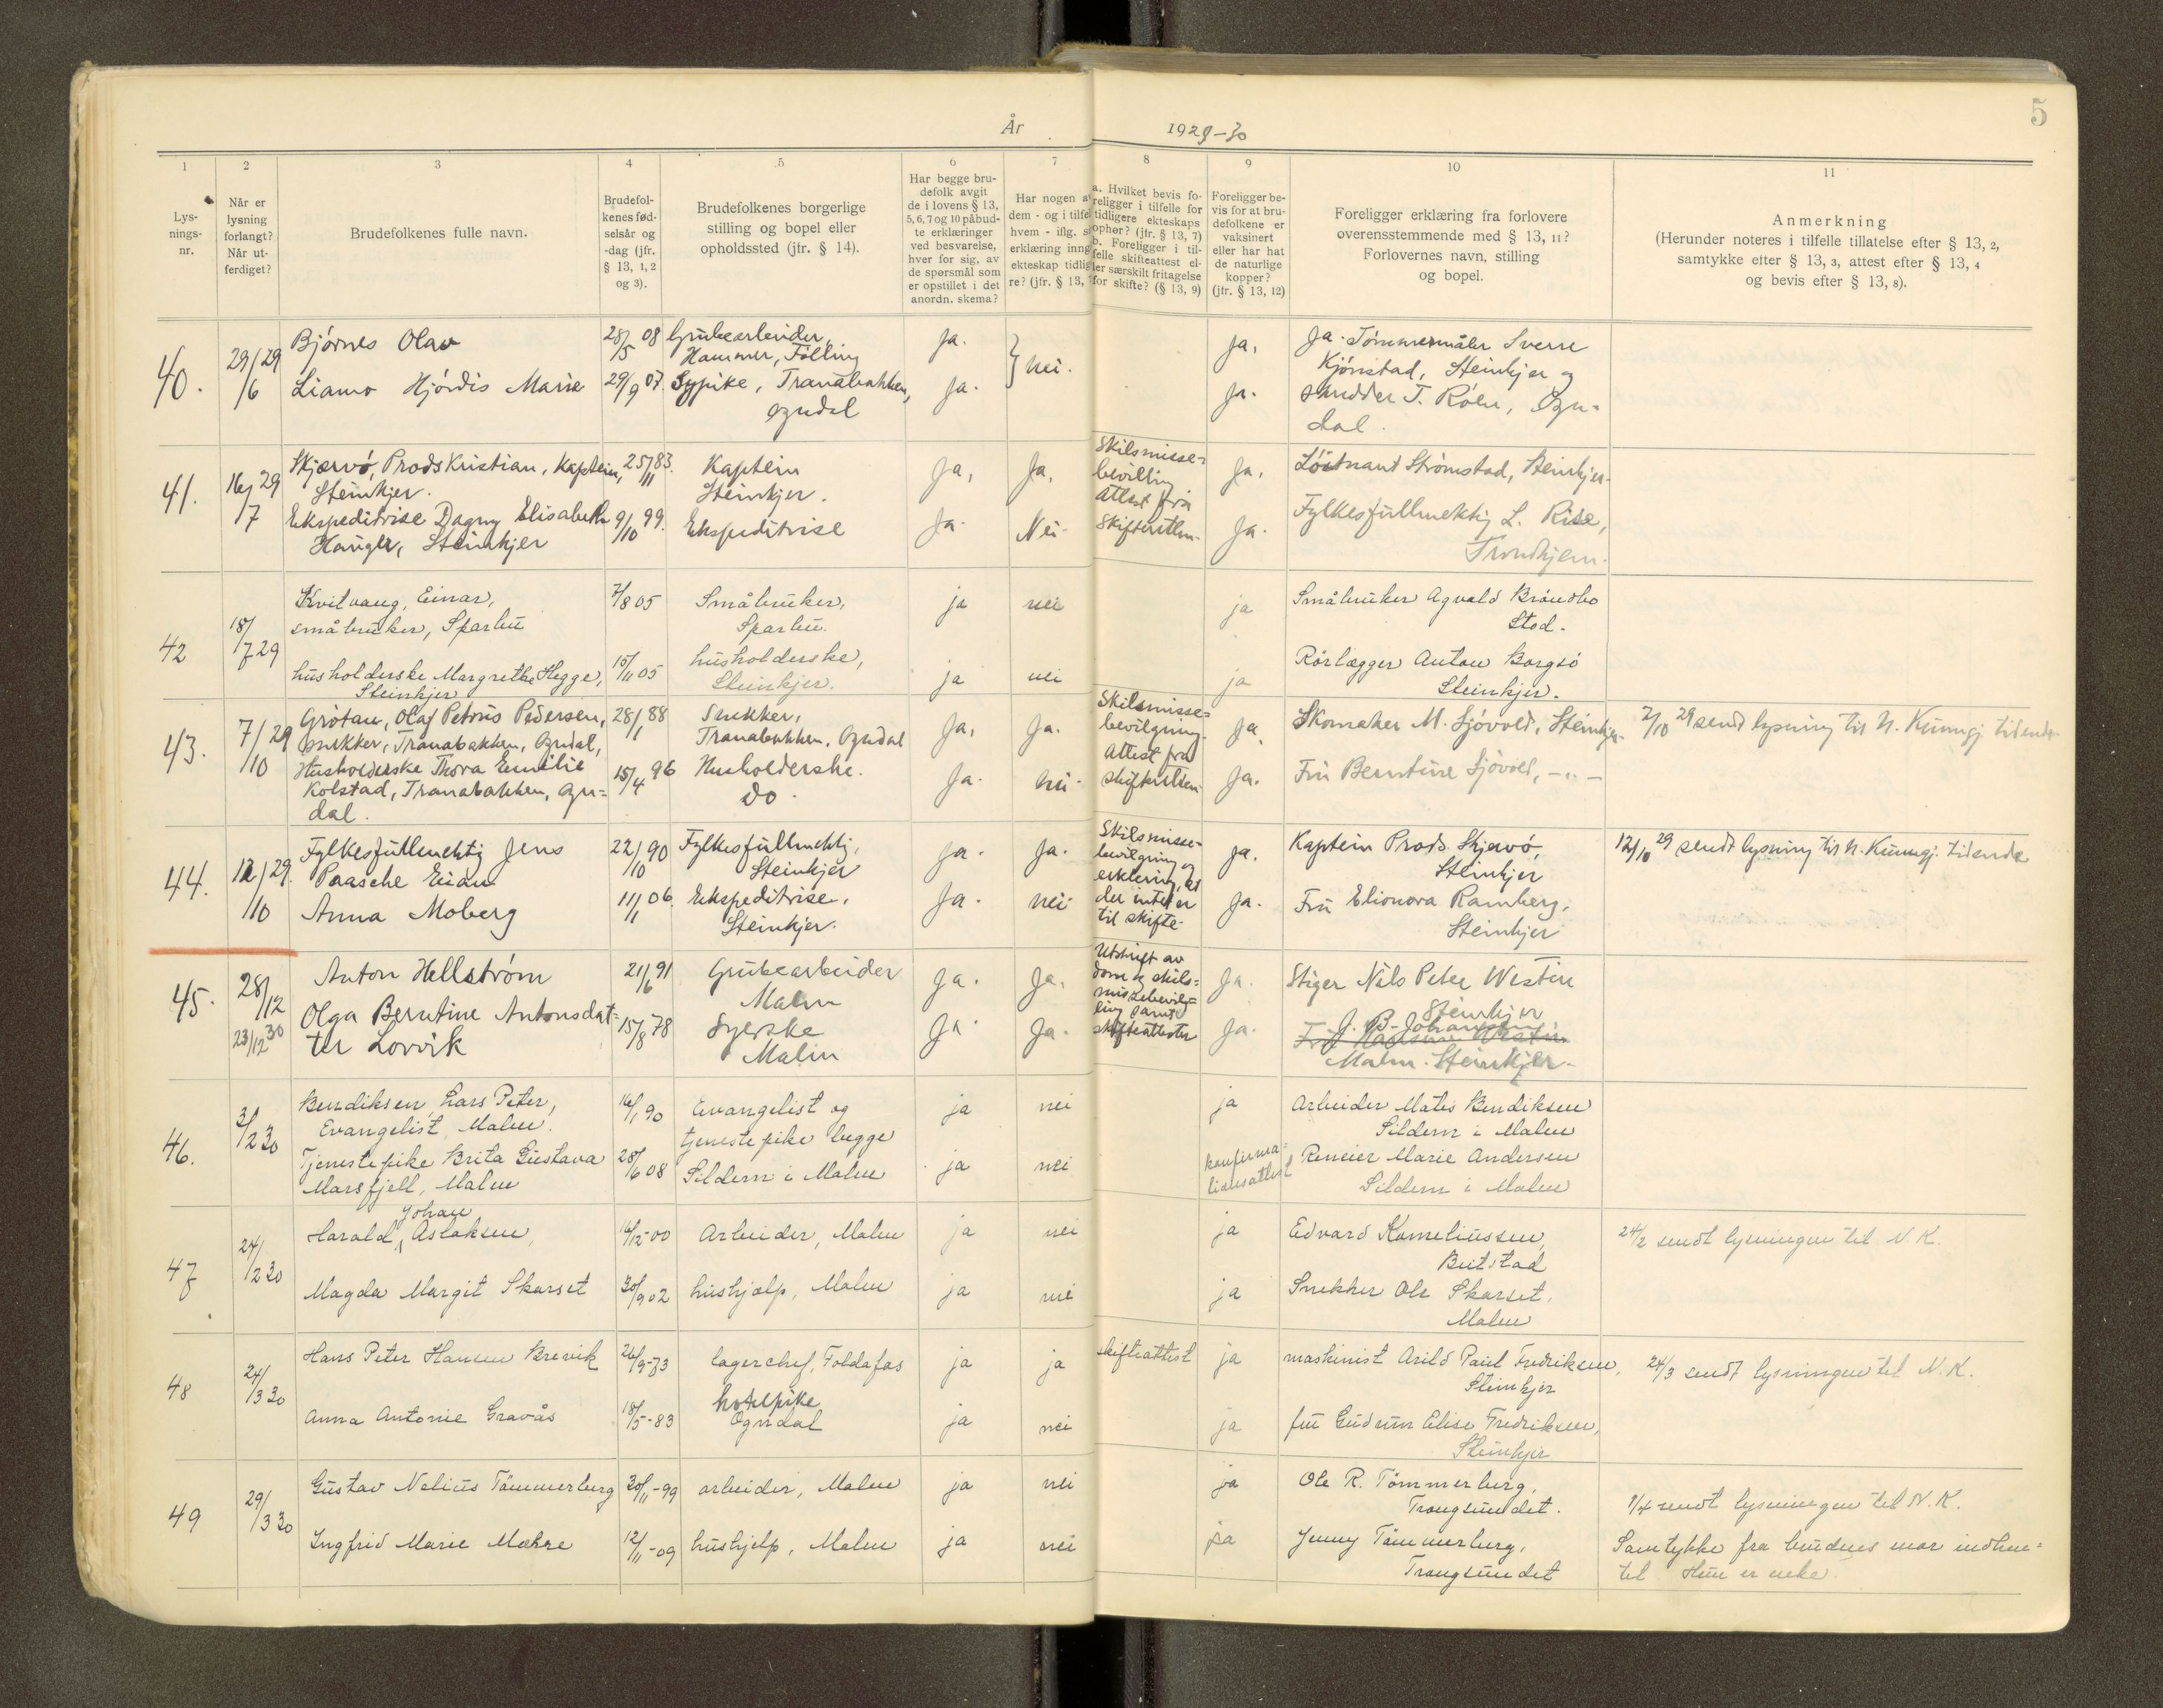 5
År
1929-30
1
2
3
4
5
6
7
8
9
10
11
Lys-
nings-
nr.
Når er
lysning
forlangt?
Når ut-
ferdiget?
Brudefolkenes fulle navn.
Brudefol-
kenes fød-
selsår og
-dag (jfr.
§ 13, 1, 2
og 3).
Brudefolkenes borgerlige
stilling og bopel eller
opholdssted (jfr. § 14).
Har begge bru-
defolk avgit
de i lovens § 13,
5, 6, 7 og 10 påbud-
te erklæringer
ved besvarelse,
hver for sig, av
de spørsmål som
er opstillet i det
anordn. skema?
Har nogen a
dem - og i tilfe
hvem - iflg. s
erklæring inng
ekteskap tidlig
re? (jfr. § 13,
a. Hvilket bevis fo-
religger i tilfelle for
tidligere ekteskaps
ophør? (jfr. § 13, 7)
b. Foreligger i til-
felle skifteattest el-
ler særskilt fritagelse
for skifte? (§ 13, 9)
Foreligger be-
vis for at bru-
defolkene er
vaksinert
eller har hat
de naturlige
kopper?
(jfr. § 13, 12)
Foreligger erklæring fra forlovere
overensstemmende med § 13, 11?
Forlovernes navn, stilling
og bopel.
Anmerkning
(Herunder noteres i tilfelle tillatelse efter § 13, 2,
samtykke efter § 13, 3, attest efter § 13, 4
og bevis efter § 13, 8).
40.
29/6 29
Bjørnes Olav
28/5 08
Grubearbeider,
Hammer, Følling
Ja.
nei.
Ja,
Ja. Tømmermåler Sverre
Kjønstad, Steinkjer og
Liamo Hjørdis Marie
29/9 07.
Sypike, Tranabakken,
Ogndal
Ja.
Ja.
T. Róen, Ogn-
dal.
41.
16/7 29
Skjærvø, Prods Kristian, Kaptein,
Steinkjer.
25/11 83.
Kaptein
Steinkjer.
Ja,
Ja,
Skilsmisse-
bevilling
Attest fra
Skifteretten.
Ja,
Løitnant Strømstad, Steinkjer.
Ekspeditrise Dagny Elisabeth
Haugler, Steinkjer
9/10 99.
Ekspeditrise
Ja.
Nei.
Ja.
Fylkesfullmektig L. Rise,
Trondhjem.
42
18/7 29
Kvitvang, Einar,
småbruker, Sparbu
7/8 05
Småbruker,
Sparbu.
ja
nei
ja
Småbruker Agvald Brøndbo
Stod.
husholderske Margrethe Hegge,
Steinkjer
15/11 05
husholderske,
Steinkjer.
ja
nei
ja
Rørlægger Anton Borgsø
Steinkjer.
43.
7/10 29
Grøtan, Olaf Petrus Pedersen,
snekker, Tranabakken, Ogndal,
28/1 88
Snekker,
Tranabakken, Ogndal
Ja,
Ja.
Skilsmisse-
bevilgning.
Attest fra
skifteretten
Ja,
Skomaker M. Sjøvold, Steinkjer.
7/10 29 sendt lysning til N. Kunngj. tidende
Husholderske Thora Emilie
Kolstad, Tranabakken, Ogn-
dal.
15/4 96
Husholderske.
Do.
Ja.
nei.
Ja.
Fru Berntine Sjøvold, -"-
44.
12/10 29.
Fylkesfullmektig Jens
Paasche Eian
22/10 90
Fylkesfullmektig,
Steinkjer
Ja.
Ja.
Skilsmisse-
bevilgning og
erklæring, at
der intet er
til skifte.
Ja.
Kaptein Prods Skjærvø,
Steinkjer
12/10 29 sendt lysning til N. Kunngj. tidende
Anna Moberg
11/1 06.
Ekspeditrise,
Steinkjer.
Ja.
nei.
Ja.
Fru Elionora Ramberg,
Steinkjer
45.
28/12
23/12 30
Anton Hellstrøm
21/6 91
Grubearbeider
Malm
Ja.
Ja,
Utskrift av
dom og skils-
missebevil-
ling samt
skifteattester
Ja.
Stiger Nils Peter Westin
Steinkjer
Olga Berntine Antonsdat-
ter Lorvik
15/8 78
Syerske
Malm
Ja.
Ja.
Ja.
J. B. Johansen
Malm. Steinkjer.
46.
3/2 30
Bendiksen, Lars Peter,
Evangelist, Malm.
16/1 90
Evangelist og
tjenestepike begge
Sildern i Malm
ja
nei
ja
Arbeider Mats Bendiksen
Sildern i Malm
Tjenestepike Brita Gustava
Marsfjell, Malm
28/6 08
ja
nei
konfirma-
tionsattest
Marie Andersen
Sildern i Malm
47
24/2 30
Johan
Harald, Aslaksen,
16/12-00
Arbeider, Malm
ja
nei
ja
Edvard Korneliussen,
Beitstad
24/2 sendt lysningen til N. K.
Magda Margit Skarset
30/9 02
hushjelp, Malm
ja
nei
ja
Snekker Ole Skarset,
Malm
48
24/3 30
Hans Peter Hansen Brevik
26/9-73
lagerchef, Foldafos
ja
ja
skifteattest
ja
maskinist Arild Paul Fredriksen,
Steinkjer
24/3 sendt lysningen til N. K.
Anna Antonie Gravås
18/5-83
hotelpike
Ogndal
ja
nei
ja
fru Gudrun Elise Fredriksen,
Steinkjer
49
29/3 30
Gustav Nelius Tømmerberg
30/11-99
arbeider, Malm
ja
nei
ja
Ole R. Tømmerberg,
Trongsundet.
1/4 sendt lysningen til N. K.
Ingfrid Marie Mokre
12/11-09
hushjelp, Malm
ja
nei
ja
Jenny Tømmerberg,
Trongsundet
Samtykke fra brudens mor indhen-
tet. Hun er enke.